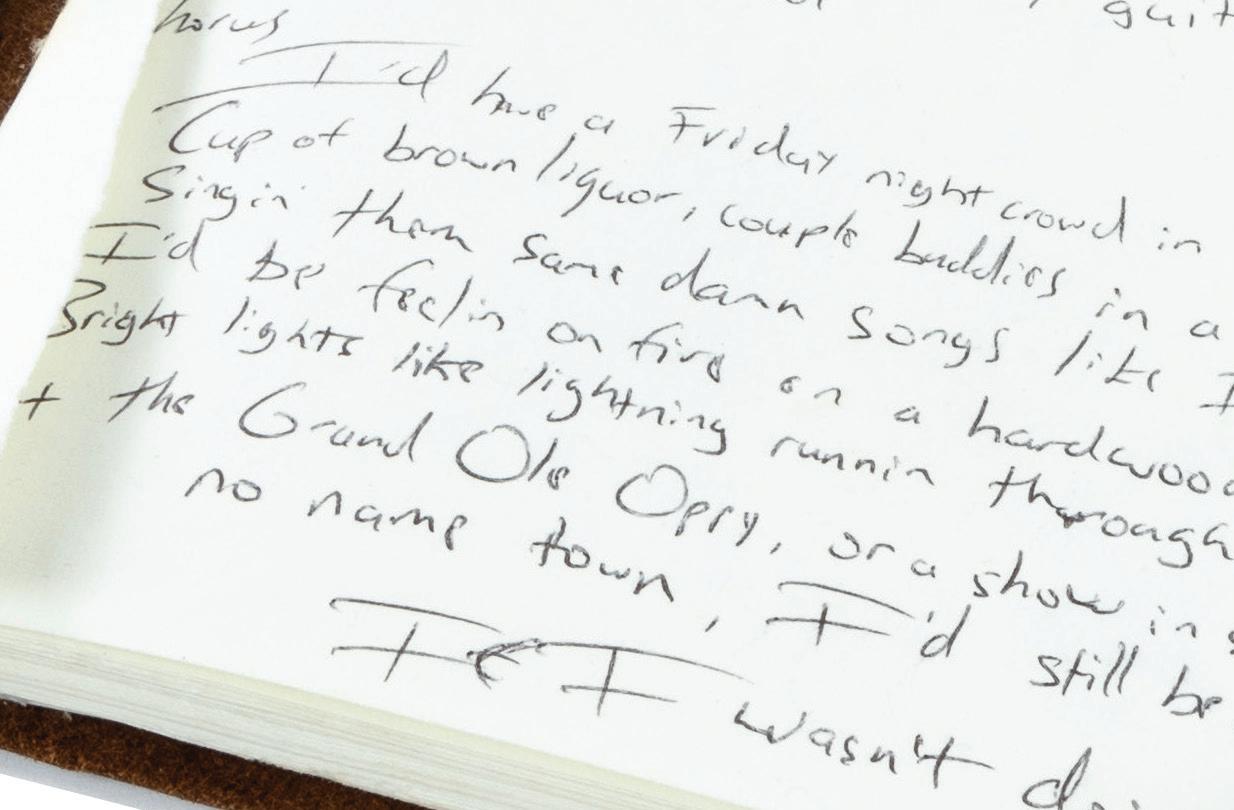 guit
horus
I'd have a Friday night crowd in
Cup of brown liquor, couple buddies in a
Singin' them same damn songs like I
I'd be feelin on fire on a hardwood
Bright lights like lightning runnin thorough
+ the Grand Ole Opry, or a show in
no name town, I'd still be
If I wasn't